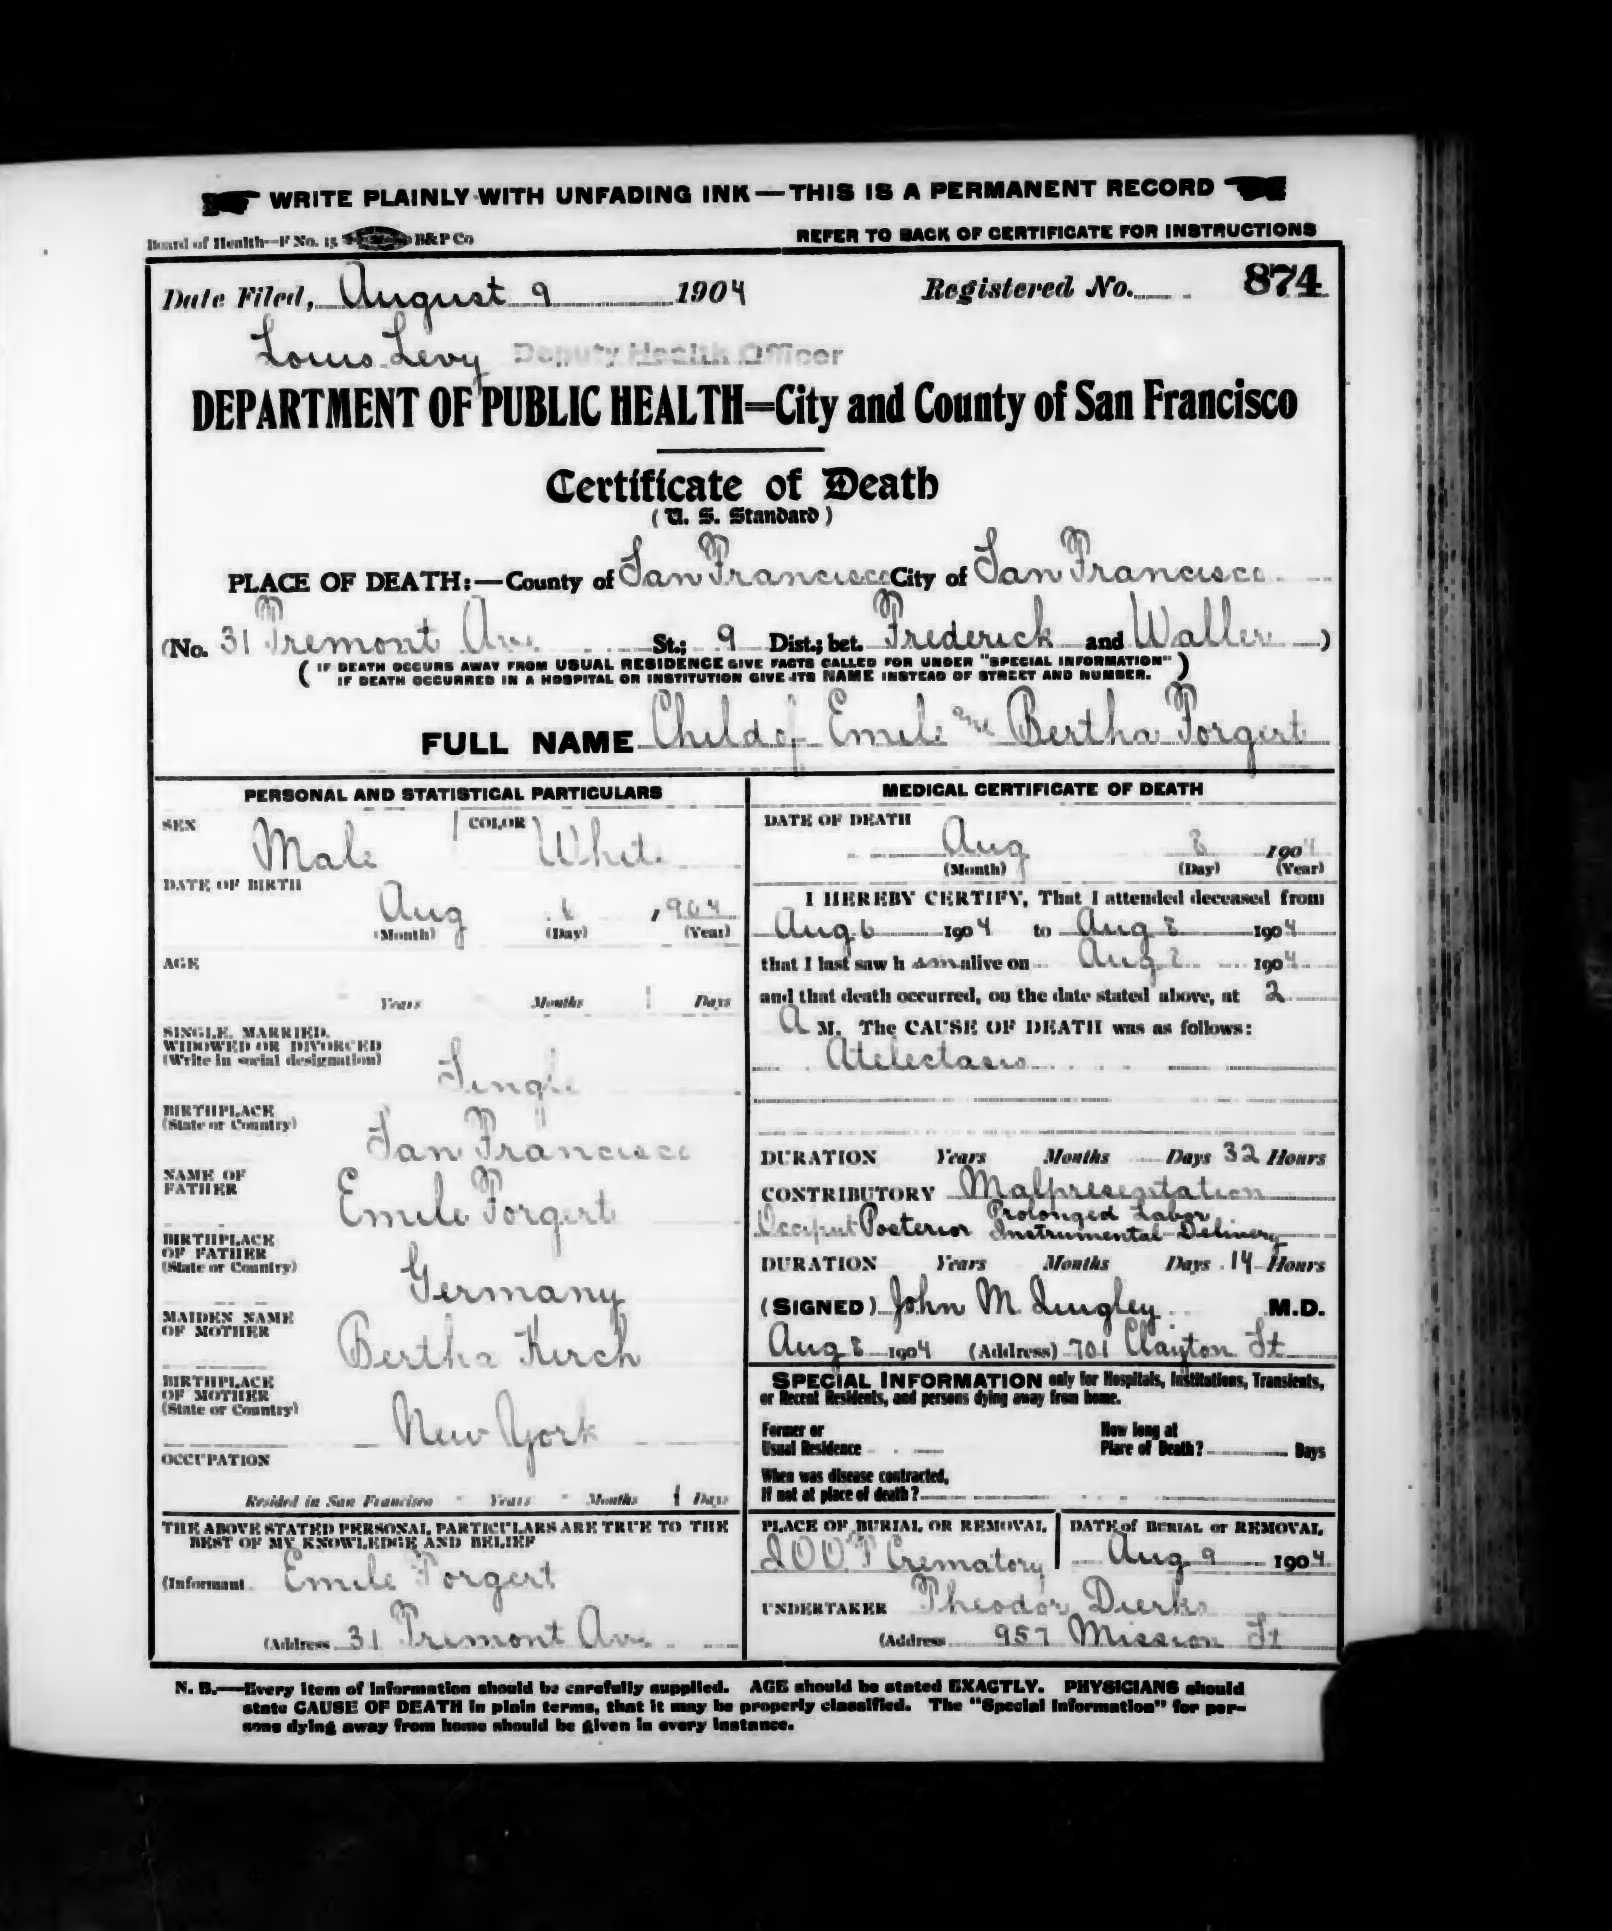 WRITE PLAINLY WITH UNFADING INK—THIS IS A PERMANENT RECORD
Board of Health—F No. 15 B&P Co REFER TO BACK OF CERTIFICATE FOR INSTRUCTIONS
Date Filed, August 9 1904 Registered No. 874
Louis Levy Deputy Health Officer
DEPARTMENT OF PUBLIC HEALTH=City and County of San Francisco
Certificate of Death
(U. S. Standard)
PLACE OF DEATH:—County of San Francisco City of San Francisco
(No. 31 Tremont Av. St.; 9 Dist.; bet. Frederick and Waller)
( IF DEATH OCCURS AWAY FROM USUAL RESIDENCE GIVE FACTS CALLED FOR UNDER "SPECIAL INFORMATION" )
IF DEATH OCCURRED IN A HOSPITAL OR INSTITUTION GIVE ITS NAME INSTEAD OF STREET AND NUMBER.
FULL NAME Child of Emile and Bertha Forgert
PERSONAL AND STATISTICAL PARTICULARS
SEX Male COLOR White
DATE OF BIRTH
Aug 6 1904
(Month) (Day) (Year)
AGE
Years Months 1 Days
SINGLE, MARRIED,
WIDOWED OR DIVORCED
(Write in social designation)
Single
BIRTHPLACE
(State or Country)
San Francisco
NAME OF
FATHER
Emile Forgert
BIRTHPLACE
OF FATHER
(State or Country)
Germany
MAIDEN NAME
OF MOTHER
Bertha Kirch
BIRTHPLACE
OF MOTHER
(State or Country)
New York
OCCUPATION
Resided in San Francisco - Years - Months 1 Days
THE ABOVE STATED PERSONAL PARTICULARS ARE TRUE TO THE
BEST OF MY KNOWLEDGE AND BELIEF
(Informant Emile Forgert
(Address 31 Tremont Av.
MEDICAL CERTIFICATE OF DEATH
DATE OF DEATH
Aug 8 1904
(Month) (Day) (Year)
I HEREBY CERTIFY, That I attended deceased from
Aug 6 1904 to Aug 8 1904
that I last saw h alive on Aug 1904
and that death occurred, on the date stated above, at 2
A M. The CAUSE OF DEATH was as follows:
Atelectasis
DURATION Years Months Days 32 Hours
CONTRIBUTORY Malpresentation
Occiput Posterior Prolonged Labor
Instrumental Delivery
DURATION Years Months Days 14 Hours
(SIGNED) John M M.D.
Aug 8 1904 (Address) 701 Clayton St
SPECIAL INFORMATION only for Hospitals, Institutions, Transients,
or Recent Residents, and persons dying away from home.
Former or
Usual Residence
How long at
Place of Death? Days
When was disease contracted,
If not at place of death?
PLACE OF BURIAL OR REMOVAL
IOOF Crematory
DATE of BURIAL or REMOVAL
Aug 9 1904
UNDERTAKER Theodor Dierks
(Address 957 Mission St
N. B.—Every item of information should be carefully supplied. AGE should be stated EXACTLY. PHYSICIANS should
state CAUSE OF DEATH in plain terms, that it may be properly classified. The "Special Information" for per-
sons dying away from home should be given in every instance.